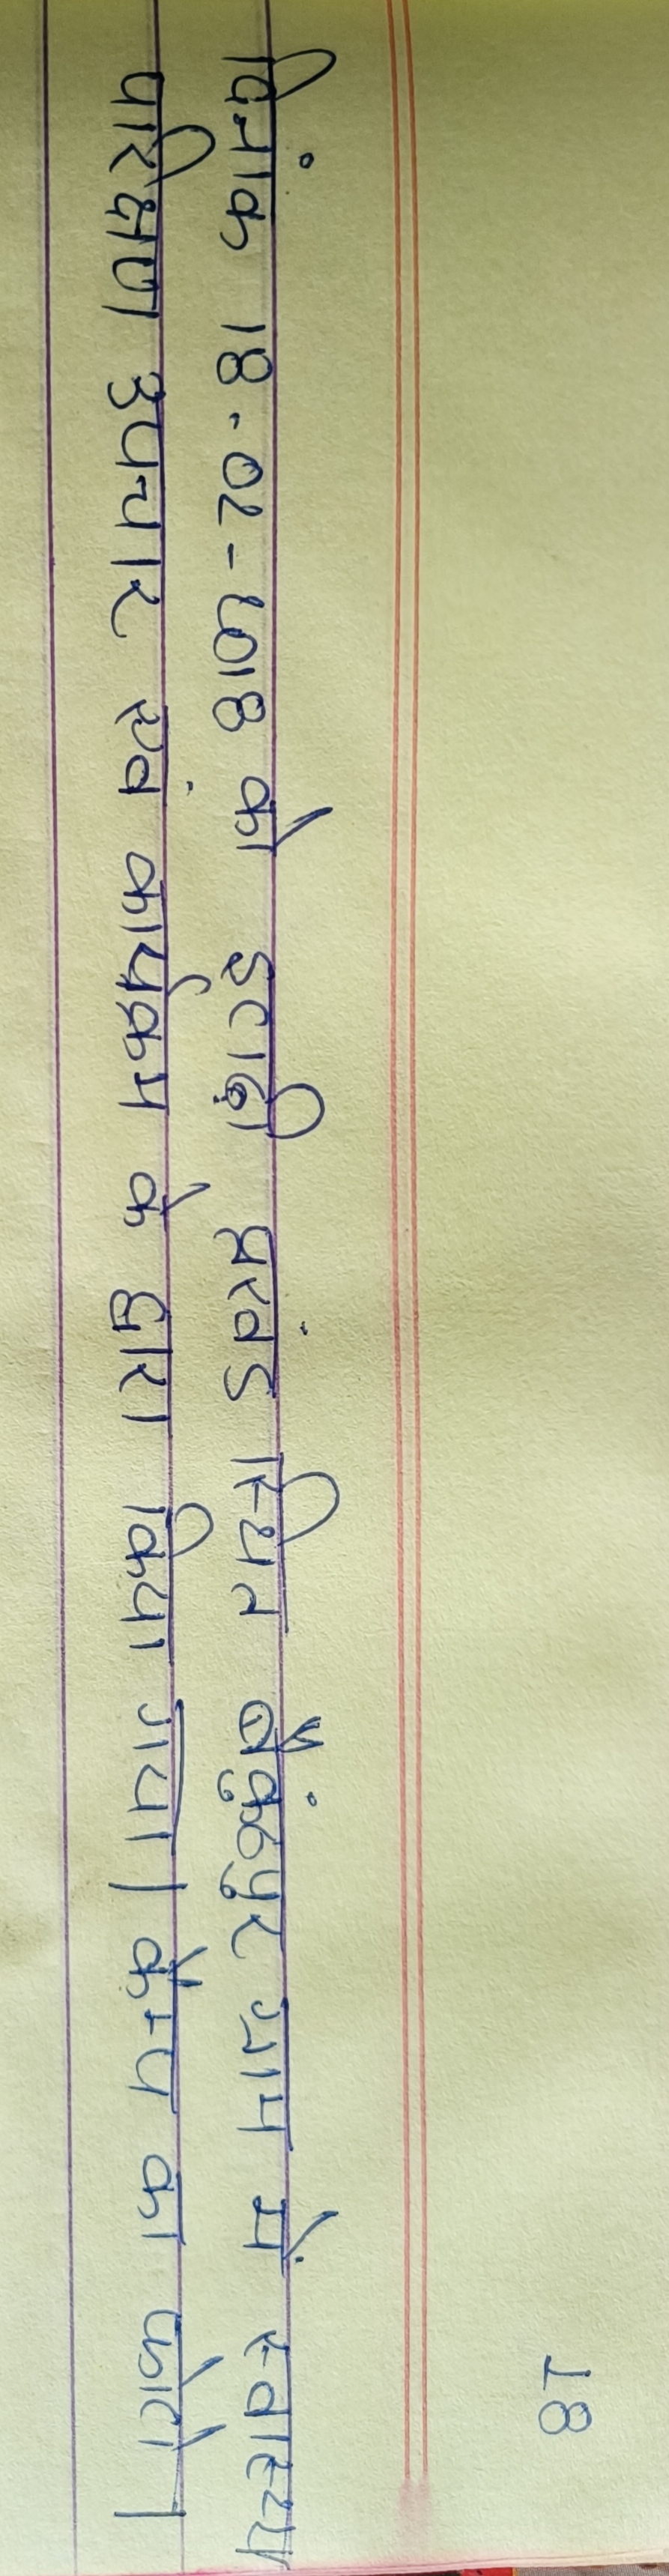 18
दिनांक 18-02-2018 को इटाढ़ी प्रखंड स्थित बैकुंठपुर ग्राम में स्वास्थ्य
परिक्षण उपचार एवं कार्यक्रम के द्वारा किया गया। कैम्प का फोटो।